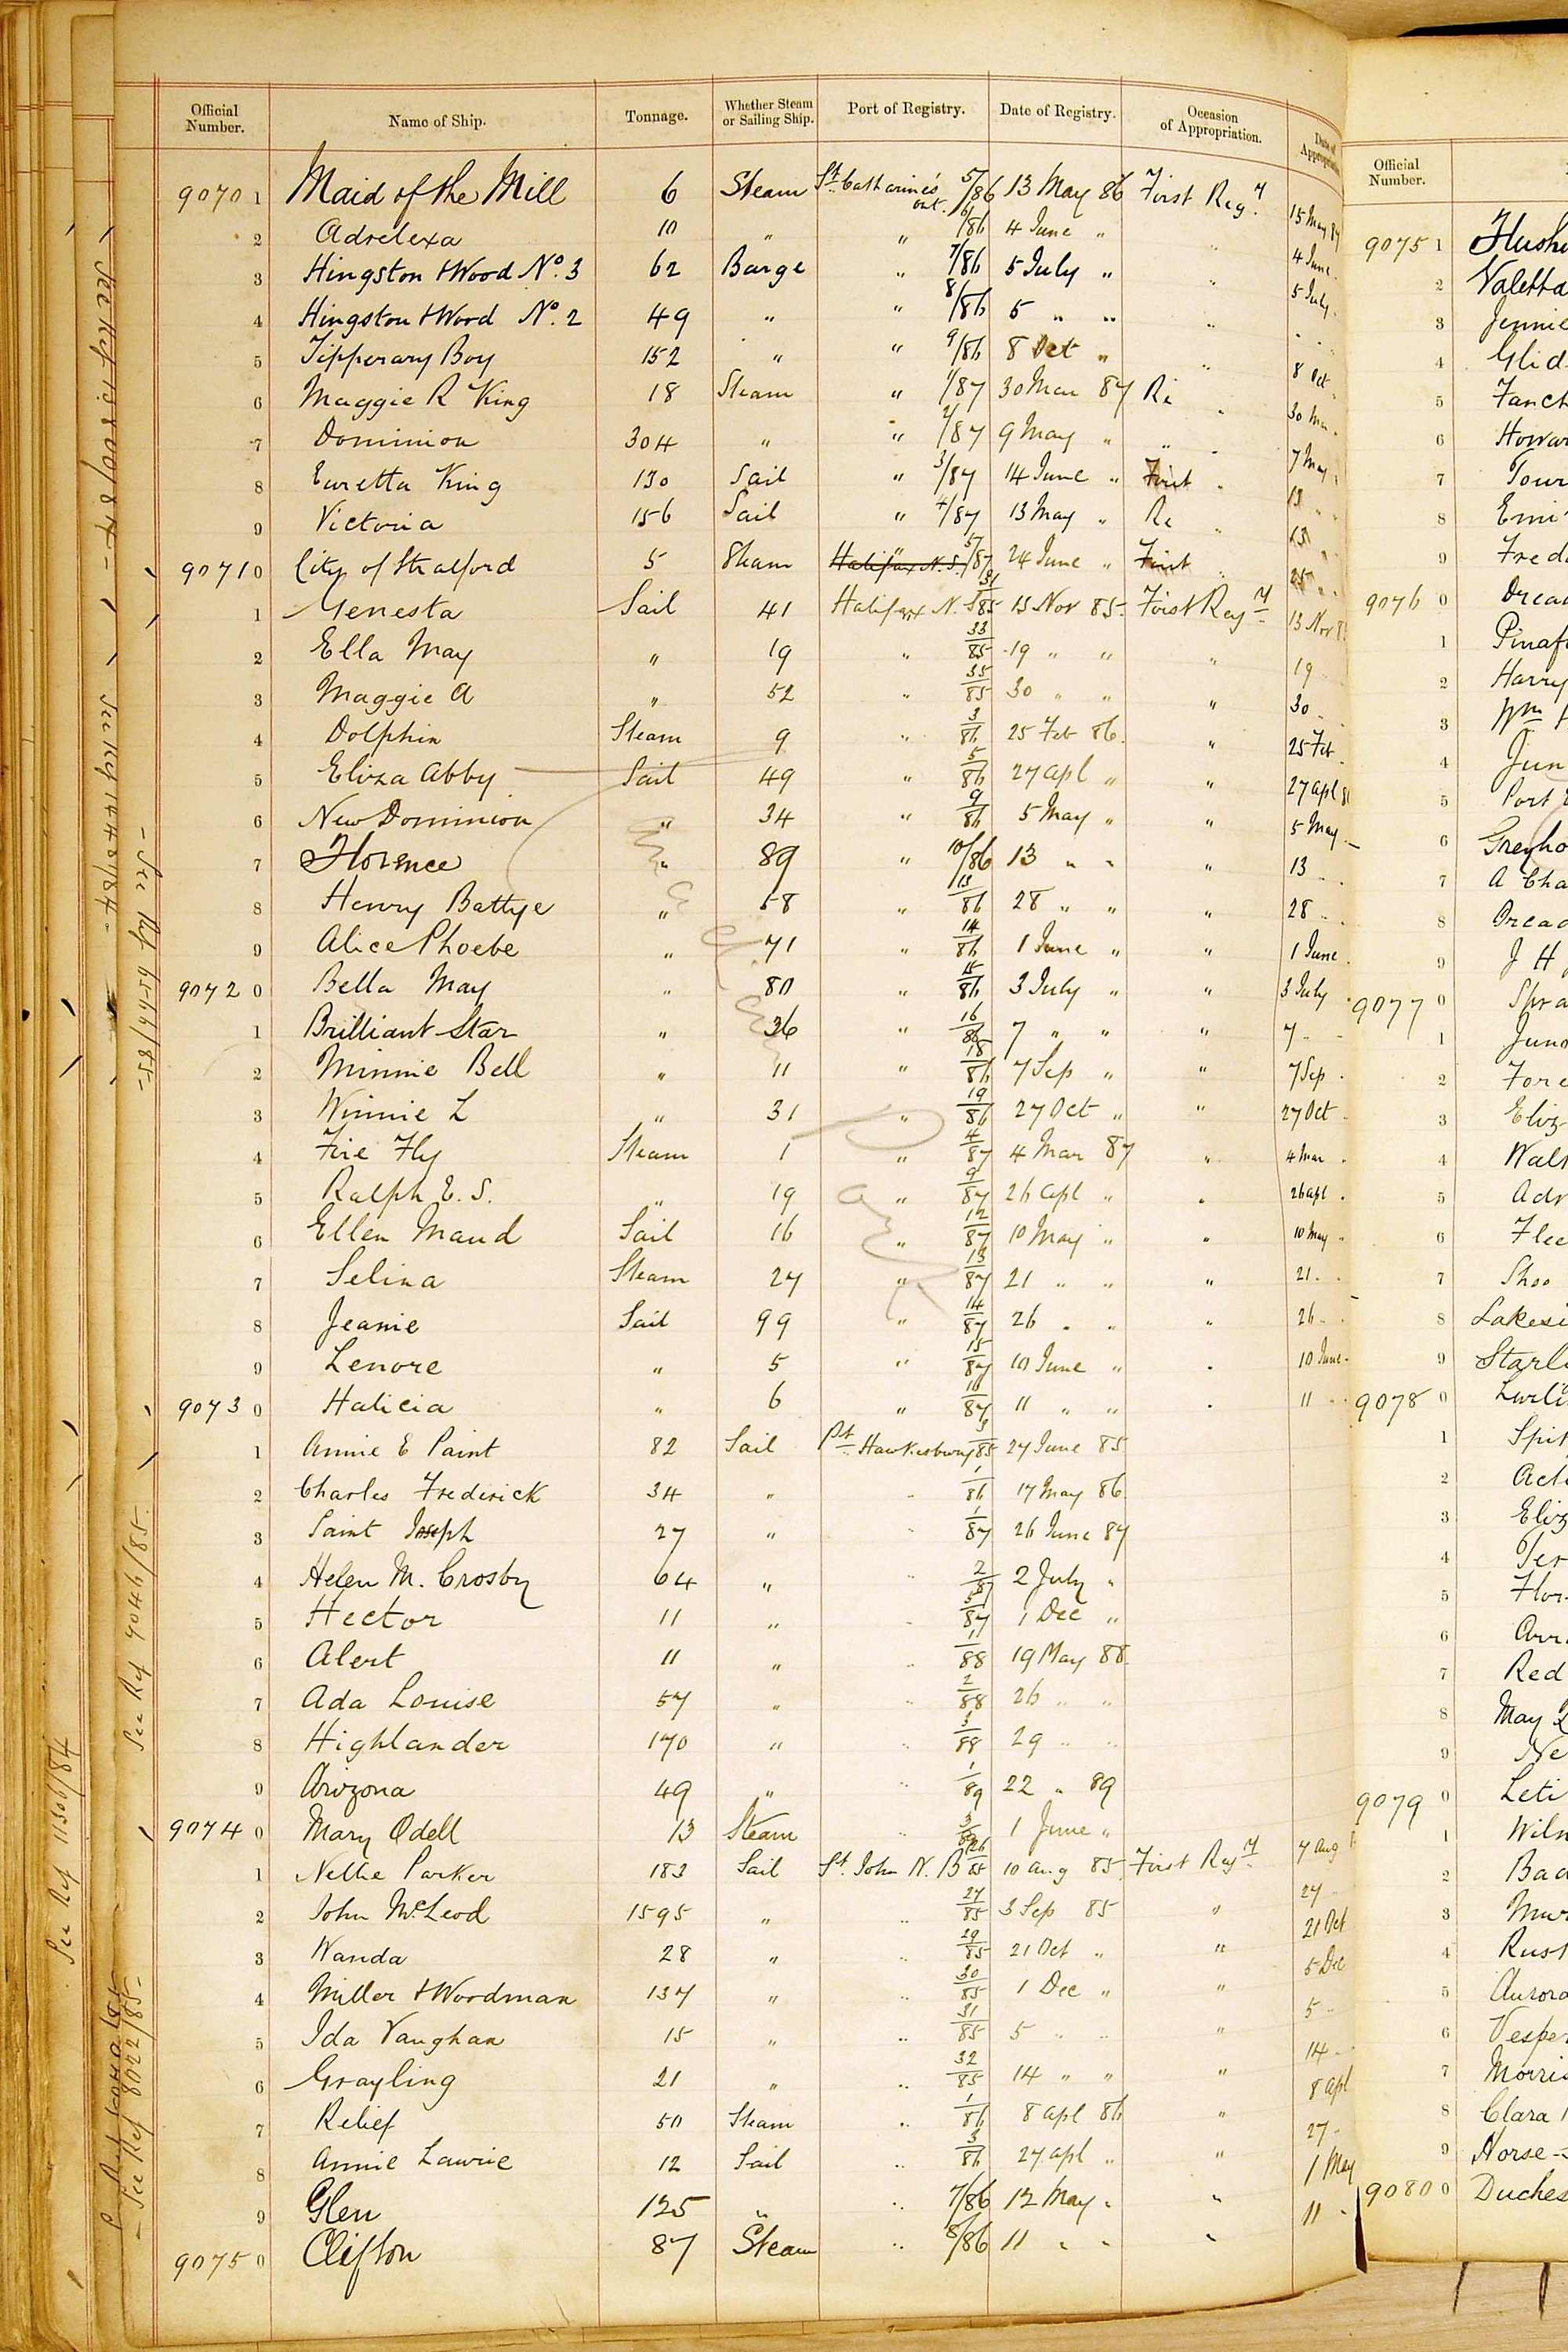 Official Number. Name of Ship. Tonnage. Whether Steam or Sailing Ship. Port of Registry. Date of Registry. Occasion of Appropriation. Date of Appropriation
9070 1 Maid of the Mill 6 Steam St. Catharines ont. 5/86 13 May 86 First Regy. 15 May
2 Adrelexa 10 " " 6/86 4 June " 4 June
3 Hingston & Wood No. 3 62 Barge " 7/86 5 July " 5 July
4 Hingston & Wood No. 2 49 " " 8/86 5 " "
5 Tipperary Boy 152 " " 9/86 8 Oct " 8 Oct
6 Maggie R King 18 Steam " 1/87 30 Mar 87 Re 30 Mar
7 Dominion 304 " " 2/87 9 May " " 7 May
8 Euretta King 130 Sail " 3/87 14 June " First 13
9 Victoria 156 Sail " 4/87 13 May " Re 13
9071 0 City of Stratford 5 Steam Halifax N.S. 5/87 24 June " First 25
1 Genesta Sail 41 Halifax N.S 31/85 13 Nov 85 First Regy 13 Nov
2 Ella May " 19 " 33/85 19 " " " 19
3 Maggie A " 52 " 35/85 30 " " " 30
4 Dolphin Steam 9 " 3/86 25 Feb 86. " 25 Feb
5 Eliza Abby Sail 49 " 5/86 27 Apl " " 27 Apl
6 New Dominion " 34 " 9/86 5 May " " 5 May
7 Florence " 89 " 10/86 13 " " " 13
8 Henry Battye " 68 " 13/86 28 " " " 28
9 Alice Phoebe " 71 " 14/86 1 June " " 1 June
9072 0 Bella May " 80 " 15/86 3 July " " 3 July
1 Brilliant Star " 36 " 16/86 7 " " " 7
2 Minnie Bell " 11 " 18/86 7 Sep " " 7 Sep
3 Winnie L " 31 " 19/86 27 Oct " " 27 Oct
4 Fire Fly Steam 1 " 4/87 4 Mar 87 " 4 Mar
5 Ralph E. S. " 19 " 9/87 26 Apl " " 26 Apl
6 Ellen Maud Sail 16 " 12/87 10 May " " 10 May
7 Selina Steam 27 " 13/87 21 " " " 21
8 Jeanie Sail 99 " 14/87 26 " " " 26
9 Lenore " 5 " 15/87 10 June " " 10 June
9073 0 Halicia " 6 " 16/87 11 " " " 11
1 Annie E Paint 82 Sail Pt Hawkesbury 3/85 27 June 85
2 Charles Frederick 34 " " 1/86 17 May 86.
3 Saint Joseph 27 " " 1/87 26 June 87
4 Helen M. Crosby 64 " " 2/87 2 July "
5 Hector 11 " " 5/87 1 Dec "
6 Alert 11 " " 1/88 19 May 88
7 Ada Louise 57 " " 2/88 26 " "
8 Highlander 170 " " 3/88 29 " "
9 Arizona 49 " " 1/89 22 " 89
9074 0 Mary Odell 13 Steam " 1 June "
1 Nellie Parker 183 Sail St. John N. B 26/85 10 Aug 85 First Regy. 7 Aug
2 John McLeod 1595 " " 27/85 3 Sep 85 " 27
3 Wanda 28 " " 29/85 21 Oct " " 21 Oct
4 Miller & Woodman 137 " " 30/85 1 Dec " " 5 Dec
5 Ida Vaughan 15 " " 31/85 5 " " " 5
6 Grayling 21 " " 32/85 14 " " " 14
7 Relief 50 Steam " 1/86 8 Apl 86 " 8 Apl
8 Annie Lawrie 12 Sail " 3/86 27 Apl " " 27
9 Glen 125 " " 7/86 12 May " " 1 May
9075 0 Clifton 87 Steam " 8/86 11 " " " 11
See Ref 11306/84
See Ref 9046/85
See Ref 8022/85
Official Number.
9075 1
2 Valetta
3 Jennie
4 Glid
5 Fanch
6 Howar
7 Tour
8 Emi
9 Fred
9076 0 Drea
1 Pinaf
2 Harry
3 Wm
4 Jun
5 Port
6 Greyho
7 A Cha
8 Dread
9 J H
9077 0 Spra
1 Juno
2 Fore
3 Eliz
4 Walt
5 Adr
6 Flee
7 Shoo
8 Lakesi
9 Starl
9078 0 Lurli
1 Spit
2 Acti
3 Eliz
4 Ter
5 Flor
6 Arr
7 Red
8 May Q
9 Ne
9079 0 Leti
1 Wiln
2 Bad
3 Mur
4 Rust
5 Aurora
6 Vesper
7 Morris
8 Clara
9 Horse-S
9080 0 Duches